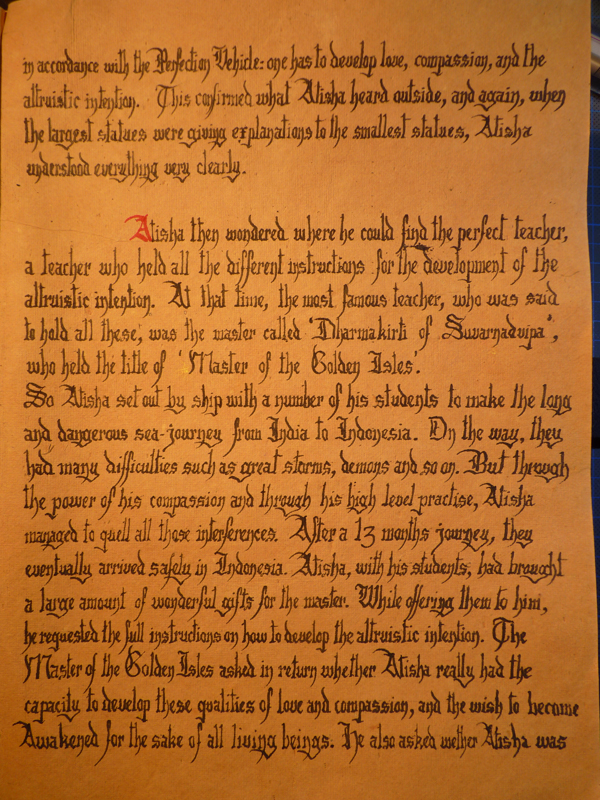 in accordance with the Perfection Vehicle: one has to develop love, compassion, and the
altruistic intention. This confirmed what Atisha heard outside, and again, when
the largest statues were giving explanations to the smallest statues, Atisha
understood everything very clearly.
Atisha then wondered where he could find the perfect teacher,
a teacher who held all the different instructions for the development of the
altruistic intention. At that time, the most famous teacher, who was said
to hold all these, was the master called "Dharmakirti of Suvarnadvipa",
who held the title of 'Master of the Golden Isles'.
So Atisha set out by ship with a number of his students to make the long
and dangerous sea-journey from India to Indonesia. On the way, they
had many difficulties such as great storms, demons and so on. But through
the power of his compassion and through his high level practise, Atisha
managed to quell all those interferences. After a 13 months journey, they
eventually arrived safely in Indonesia. Atisha, with his students, had brought
a large amount of wonderful gifts for the master. While offering them to him,
he requested the full instructions on how to develop the altruistic intention. The
Master of the Golden Isles asked in return whether Atisha really had the
capacity to develop these qualities of love and compassion, and the wish to become
Awakened for the sake of all living beings. He also asked wether Atisha was